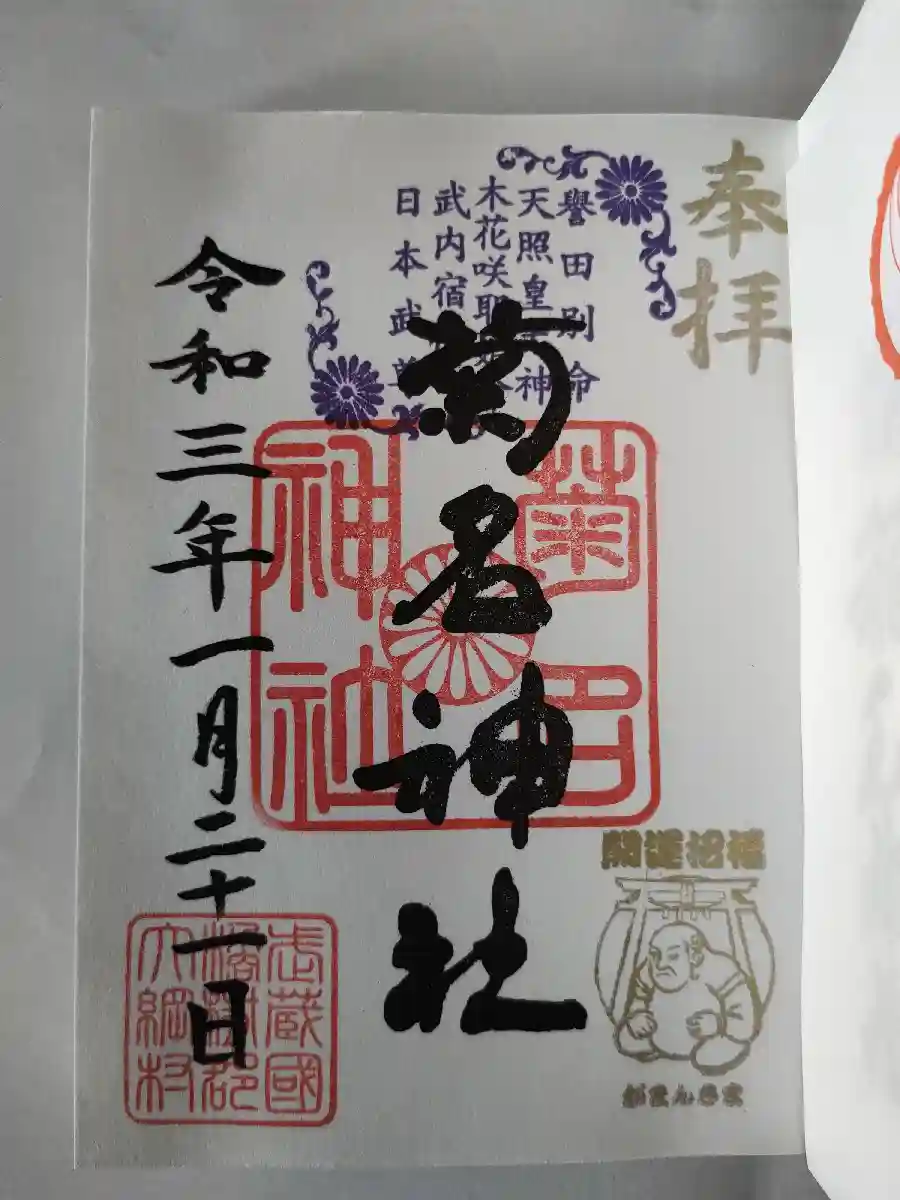 奉拝
譽田別命
天照皇神
木花咲耶
武内宿
日本武尊
菊名神社
菊名
神社
令和三年一月二十一日
開運招福
がまんさま
武蔵國
橘樹郡
大綱村